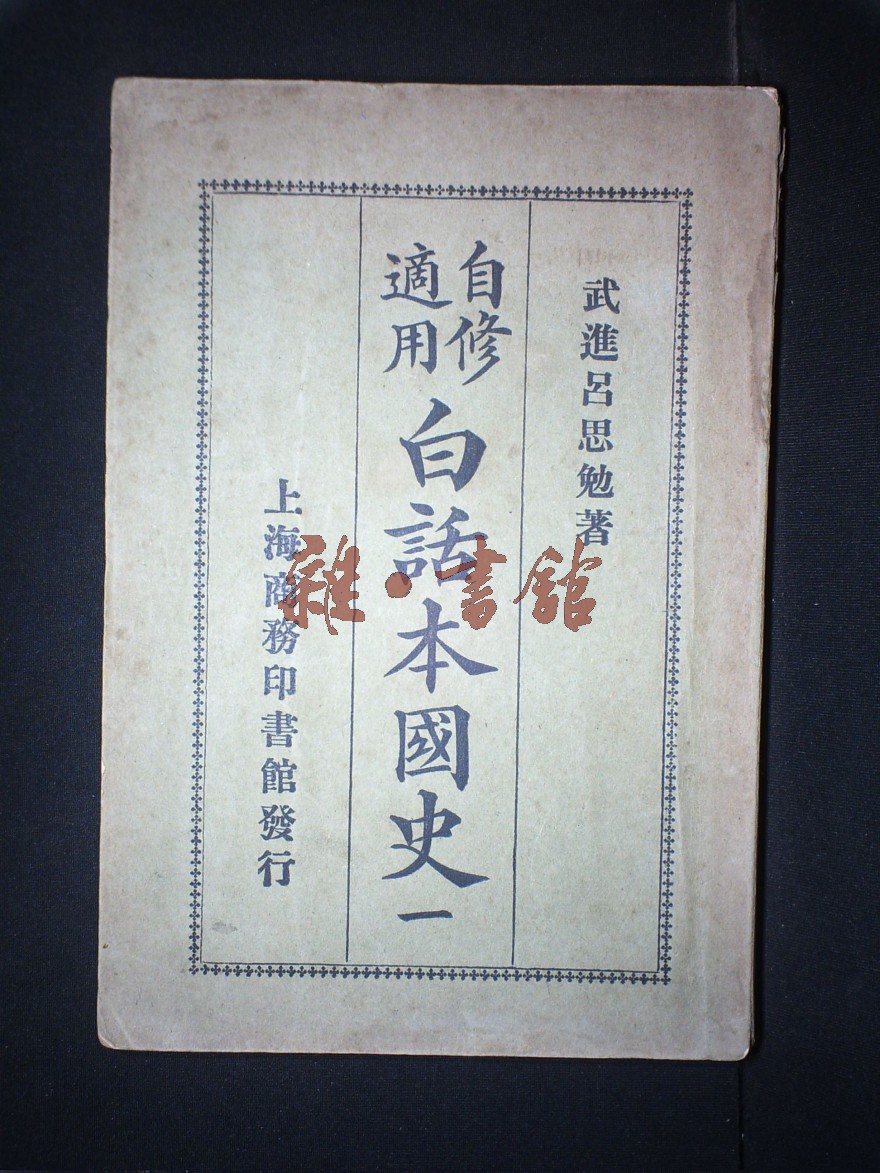 武進呂思勉著
自修
適用
白話本國史一
上海商務印書館發行
雜·書館